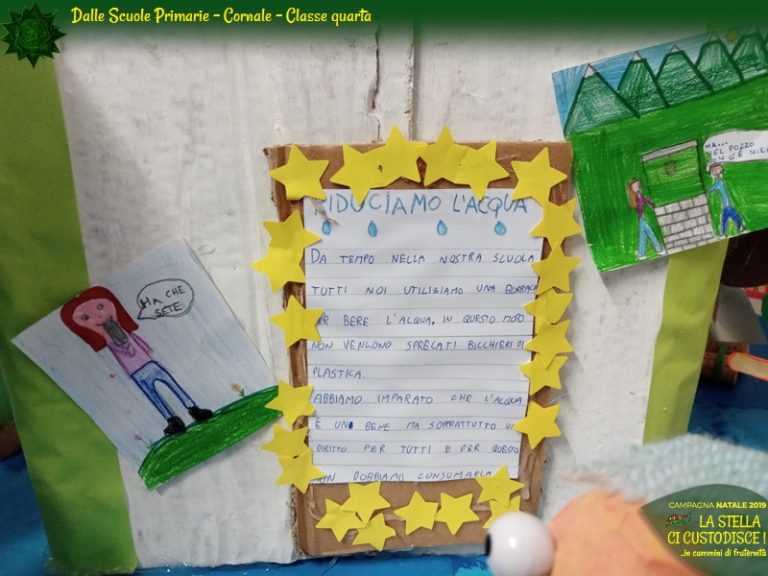 Dalle Scuole Primarie - Cornale - Classe quarta
MA...
NEL POZZO
RIDUCIAMO L'ACQUA
DA TEMPO NELLA NOSTRA SCUOLA
TUTTI NOI UTILIZIAMO UNA
PER BERE L'ACQUA, IN QUESTO MODO
NON VENGONO SPRECATI BICCHIERI DI
PLASTICA.
ABBIAMO IMPARATO CHE L'ACQUA
È UN BENE MA SOPRATTUTTO UN
DIRITTO PER TUTTI E PER QUESTO
NON DOBBIAMO CONSUMARLA
MA CHE
SETE
CAMPAGNA NATALE 2019
LA STELLA
CI CUSTODISCE!
...in cammini di fraternità